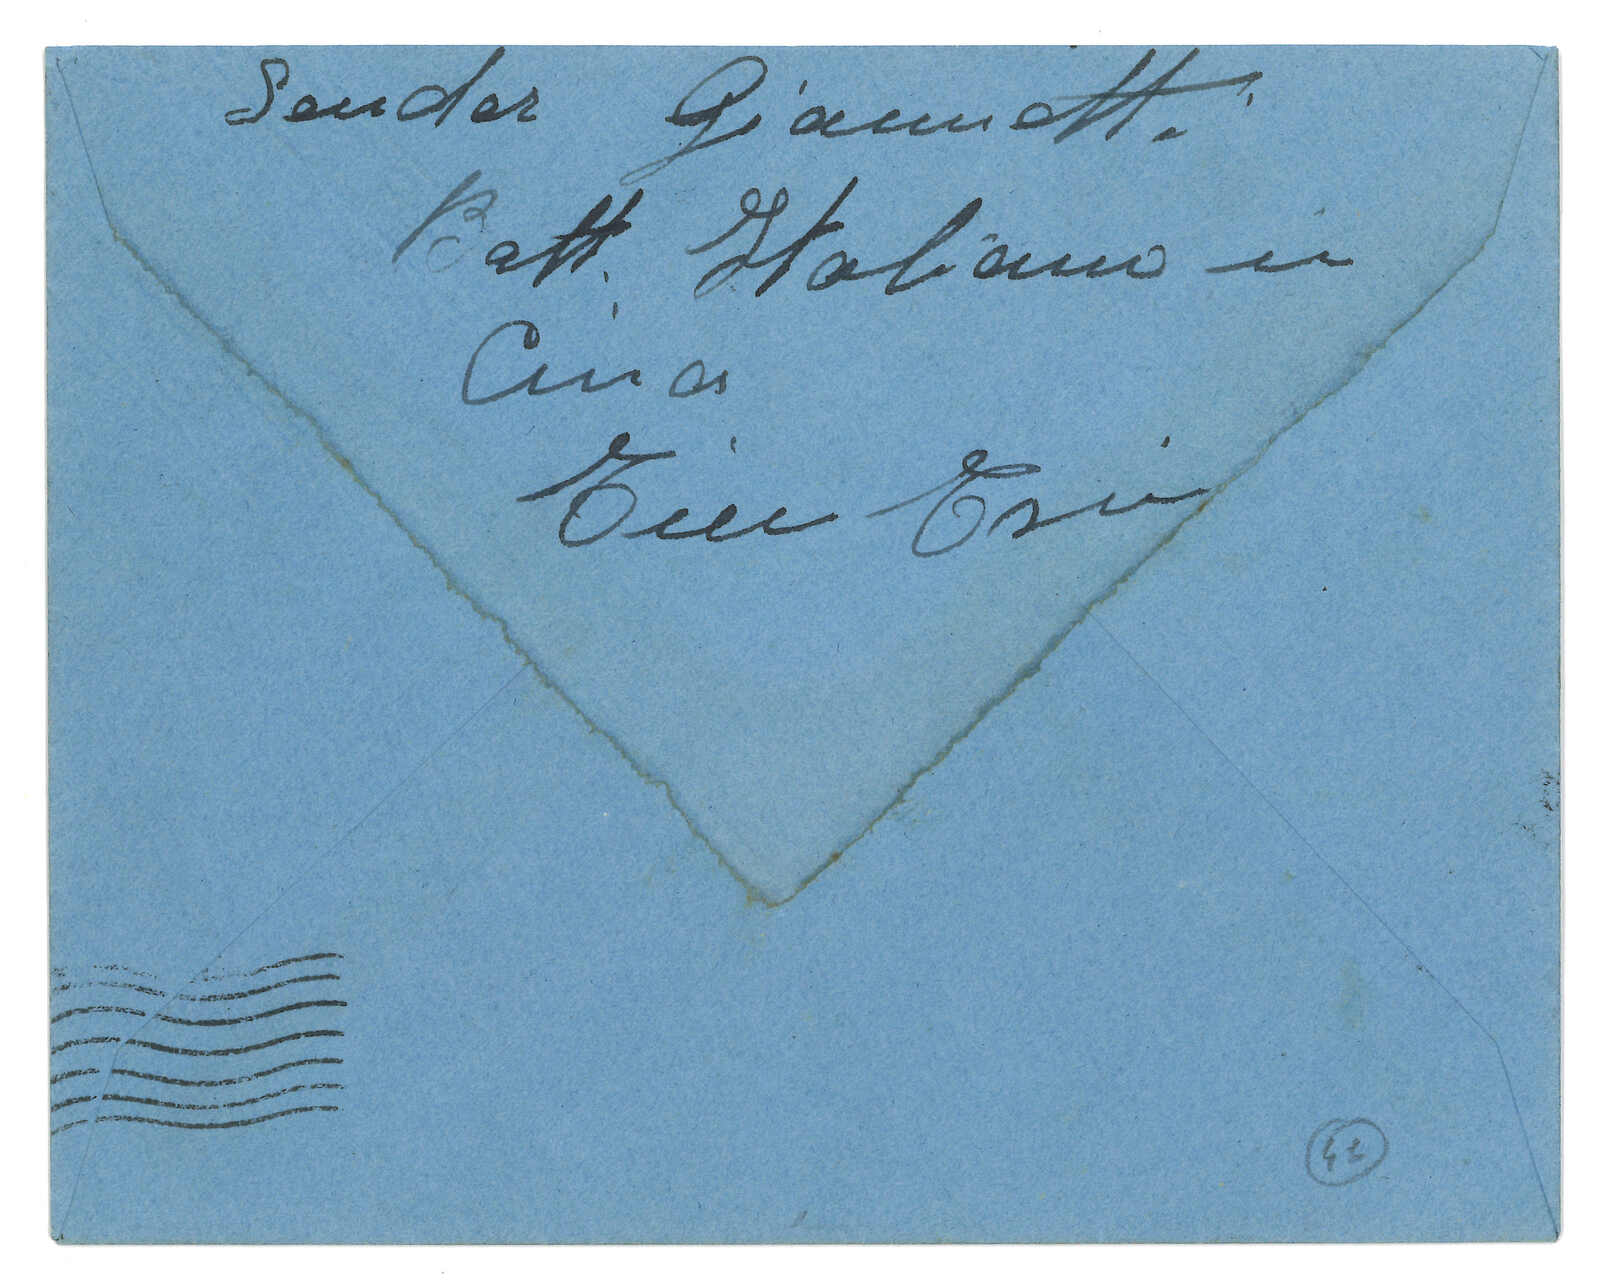 Sender Giannetti
Batt. Italiano in
Cina
Tien Tsin
42